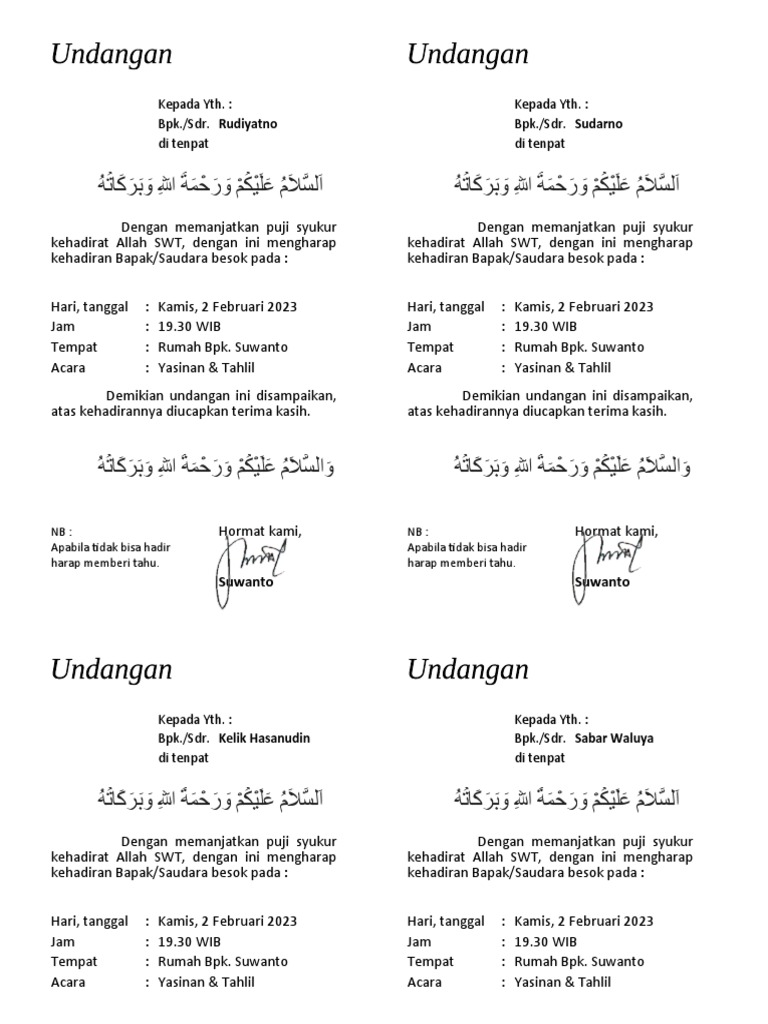 Undangan
Kepada Yth. :
Bpk./Sdr. Rudiyatno
di tenpat
اَلسَّلاَمُ عَلَيْكُمْ وَرَحْمَةُ اللهِ وَبَرَكَاتُهُ
Dengan memanjatkan puji syukur
kehadirat Allah SWT, dengan ini mengharap
kehadiran Bapak/Saudara besok pada :
Hari, tanggal : Kamis, 2 Februari 2023
Jam : 19.30 WIB
Tempat : Rumah Bpk. Suwanto
Acara : Yasinan & Tahlil
Demikian undangan ini disampaikan,
atas kehadirannya diucapkan terima kasih.
وَالسَّلاَمُ عَلَيْكُمْ وَرَحْمَةُ اللهِ وَبَرَكَاتُهُ
NB :
Apabila tidak bisa hadir
harap memberi tahu.
Hormat kami,
Suwanto
Undangan
Kepada Yth. :
Bpk./Sdr. Sudarno
di tenpat
اَلسَّلاَمُ عَلَيْكُمْ وَرَحْمَةُ اللهِ وَبَرَكَاتُهُ
Dengan memanjatkan puji syukur
kehadirat Allah SWT, dengan ini mengharap
kehadiran Bapak/Saudara besok pada :
Hari, tanggal : Kamis, 2 Februari 2023
Jam : 19.30 WIB
Tempat : Rumah Bpk. Suwanto
Acara : Yasinan & Tahlil
Demikian undangan ini disampaikan,
atas kehadirannya diucapkan terima kasih.
وَالسَّلاَمُ عَلَيْكُمْ وَرَحْمَةُ اللهِ وَبَرَكَاتُهُ
NB :
Apabila tidak bisa hadir
harap memberi tahu.
Hormat kami,
Suwanto
Undangan
Kepada Yth. :
Bpk./Sdr. Kelik Hasanudin
di tenpat
اَلسَّلاَمُ عَلَيْكُمْ وَرَحْمَةُ اللهِ وَبَرَكَاتُهُ
Dengan memanjatkan puji syukur
kehadirat Allah SWT, dengan ini mengharap
kehadiran Bapak/Saudara besok pada :
Hari, tanggal : Kamis, 2 Februari 2023
Jam : 19.30 WIB
Tempat : Rumah Bpk. Suwanto
Acara : Yasinan & Tahlil
Undangan
Kepada Yth. :
Bpk./Sdr. Sabar Waluya
di tenpat
اَلسَّلاَمُ عَلَيْكُمْ وَرَحْمَةُ اللهِ وَبَرَكَاتُهُ
Dengan memanjatkan puji syukur
kehadirat Allah SWT, dengan ini mengharap
kehadiran Bapak/Saudara besok pada :
Hari, tanggal : Kamis, 2 Februari 2023
Jam : 19.30 WIB
Tempat : Rumah Bpk. Suwanto
Acara : Yasinan & Tahlil